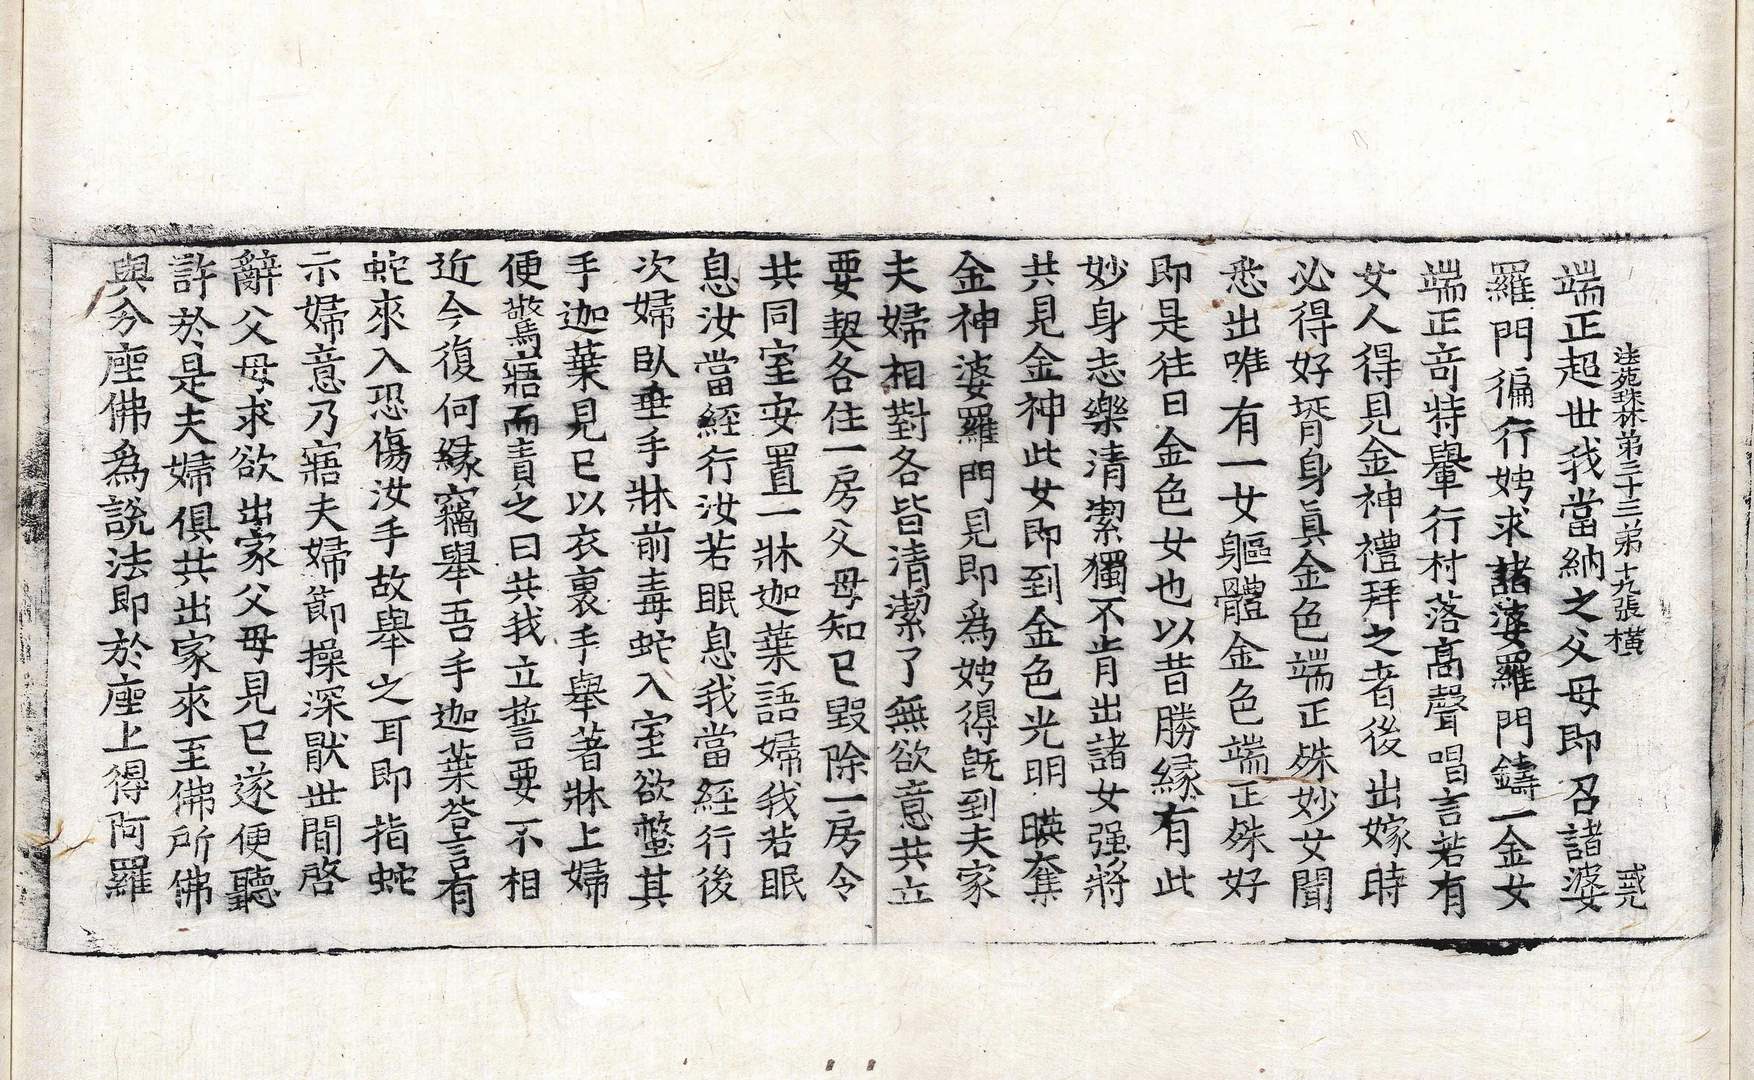 法苑珠林第三十三 第十九張 橫
端正超世我當納之父母即召諸婆
羅門徧行娉求諸婆羅門鑄一金女
端正竒特轝行村落高聲唱言若有
女人得見金神禮拜之者後出嫁時
必得好壻身眞金色端正姝妙女聞
悉出唯有一女軀體金色端正姝好
即是往日金色女也以昔勝緣有此
妙身志樂清潔獨不肯出諸女强將
共見金神此女即到金色光明暎奪
金神婆羅門見即爲娉得旣到夫家
夫婦相對各皆清潔了無欲意共立
要契各住一房父母知已毀除一房令
共同室安置一牀迦葉語婦我若眠
息汝當經行汝若眠息我當經行後
次婦臥垂手牀前毒蛇入室欲螫其
手迦葉見已以衣裹手舉著牀上婦
便驚寤而責之曰共我立誓要不相
近今復何緣竊舉吾手迦葉答言有
蛇來入恐傷汝手故舉之耳即指蛇
示婦意乃寤夫婦節操深猒世間啓
辭父母求欲出家父母見已遂便聽
許於是夫婦俱共出家來至佛所佛
與分座佛爲說法即於座上得阿羅